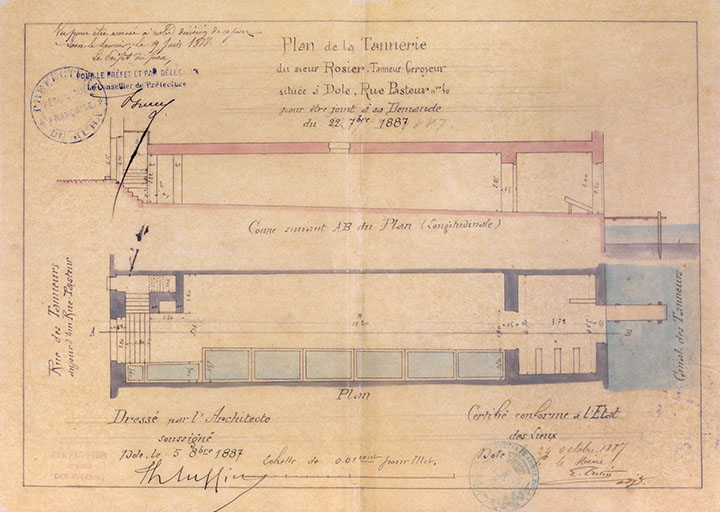 Vu pour être annexé à notre décision de ce jour
Lons-le-Saunier, le 9 Juin 1888.
Le Préfet du Jura,
POUR LE PRÉFET ET PAR DÉLÉGATION
Le Conseiller de Préfecture
PRÉFECTURE
RÉPUBLIQUE
FRANÇAISE
DU JURA
Plan de la Tannerie
du sieur Rosier, Tanneur-Corroyeur
située à Dole, Rue Pasteur nos 40
pour être joint à sa Demande
du 22 7bre 1887
Coupe suivant AB du Plan (Longitudinale)
Rue des Tanneurs
aujourd'hui Rue Pasteur
A
3.78
B
Canal des Tanneurs
Plan
Dressé par l'Architecte
soussigné
Dole, le 5 8bre 1887
Echelle de 0.01cent pour Met.
Certifié conforme à l'Etat
des Lieux
Dole 24 octobre 1887
le Maire